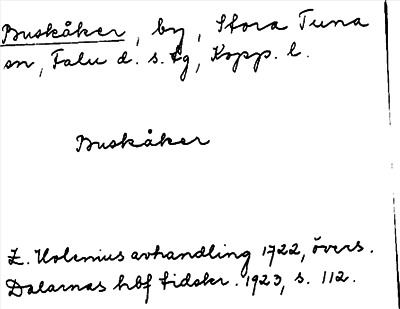 Buskåker, by, Stora Tuna
sn, Falu d. s. tg, Kopp. l.
Buskåker
Z. Holenius avhandling 1722, övers.
Dalarnas hbf tidskr. 1923, s. 112.